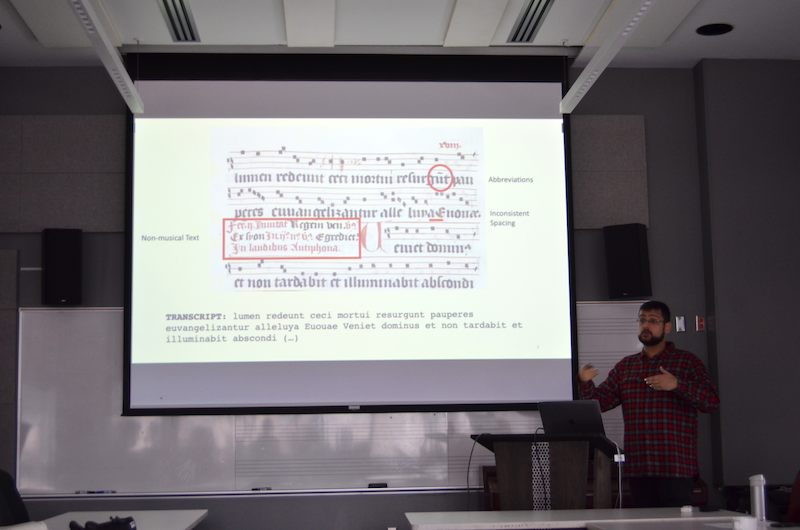 xviij.
lumen redeunt ceci mortui resurgūt pau
Abbreviations
peres euuangelizantur alle luya Euouae.
Inconsistent
Spacing
Non-musical Text
Regem ven.
Ex syon Egredietᷣ
In laudibus Antiphona.
eniet domin
et non tardabit et illuminabit abscondi
TRANSCRIPT: lumen redeunt ceci mortui resurgunt pauperes
euvangelizantur alleluya Euouae Veniet dominus et non tardabit et
illuminabit abscondi (…)